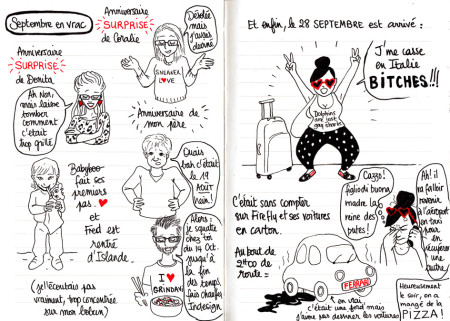 Septembre en vrac
Anniversaire
SURPRISE
de Coralie
Désolée
mais
j'avais
deviné
Anniversaire
SURPRISE
de Donita
Ah Non,
mais laisse
tomber
comment
c'était
trop grillé
SNEAKER
LOVE
Anniversaire de
mon père
Ouais
bah c'était
le 19
AOÛT
hein!
fait ses
premiers
pas.
et
Fred est
rentré
d'Islande.
(je l'écoutais pas
vraiment, trop concentrée
sur mon bobun)
Alors
je squatte
chez toi
du 14 Oct.
jusqu'à
la fin
des
temps
fais chauffer
Indesign
I ♥
GRINDR
Et enfin, le 28 SEPTEMBRE est arrivé :
J'me casse
en Italie
BITCHES!!!
Dolphins
are just
gay sharks
C'était sans compter
sur Firefly et ses voitures
en carton.
Au bout de
route =
Cazzo!
figlio di buona
madre la
reine des
putes!
Ah! il
va falloir
revenir
à l'aéroport
en taxi
pour
en
récupérer
une
autre.
FERRARI
en vrai
c'était une ford mais
j'aime pas dessiner les voitures
Heureusement
le soir, on a
mangé de la
PIZZA!